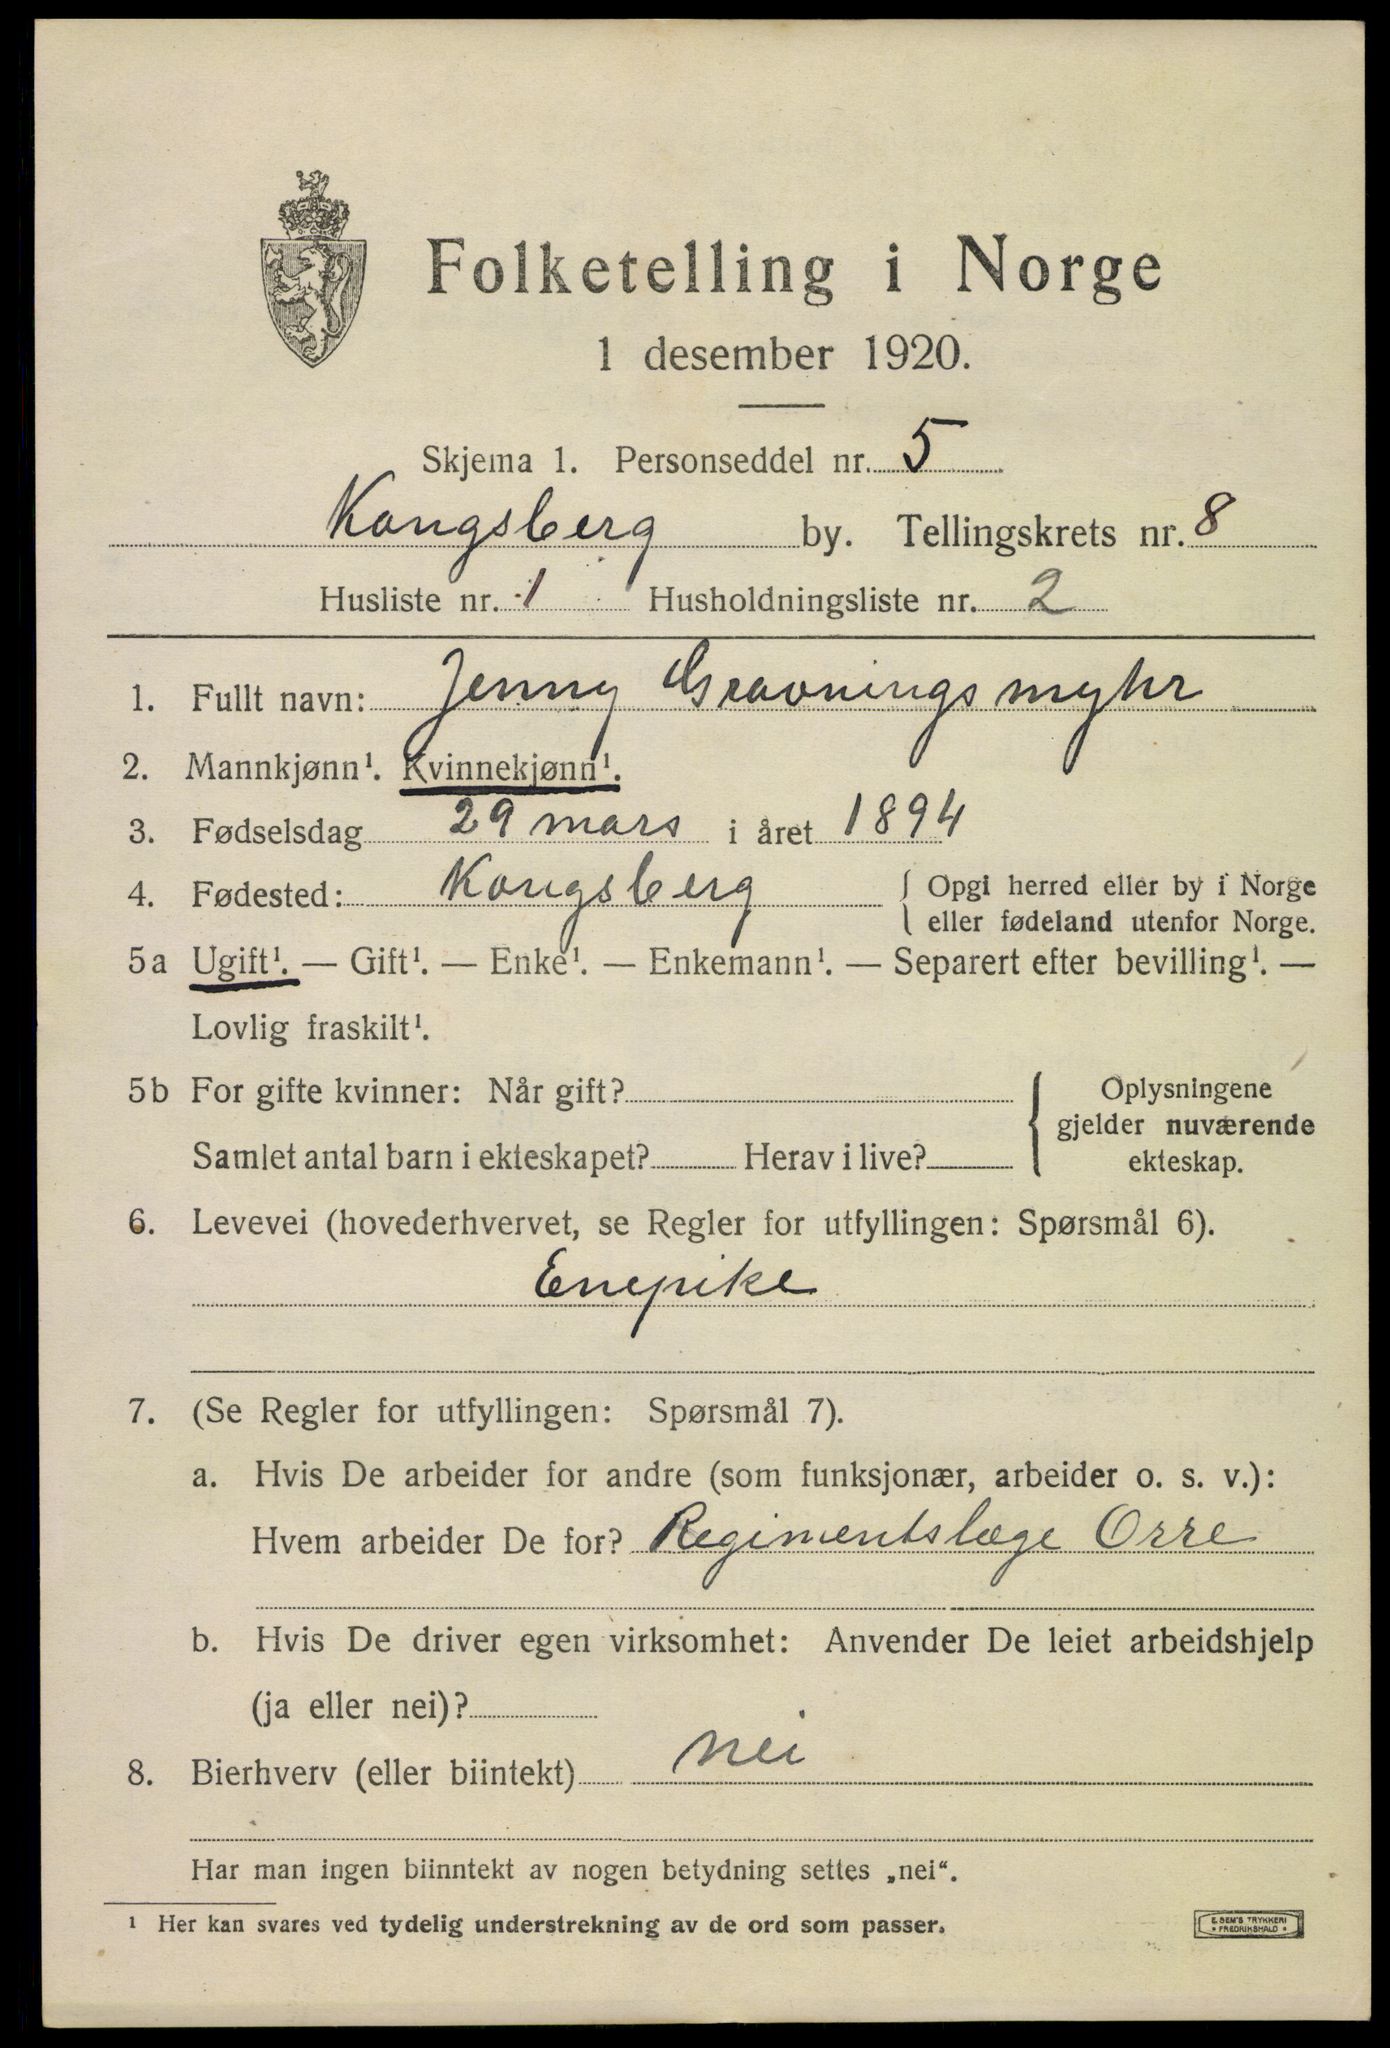 Folketelling i Norge
1 desember 1920.
Skjema 1. Personseddel nr. 5
Kongsberg by. Tellingskrets nr. 8
Husliste nr. 1 Husholdningsliste nr. 2
1. Fullt navn: Jenny Gravningsmyhr
2. Mannkjønn¹. Kvinnekjønn¹.
3. Fødselsdag 29 mars i året 1894
4. Fødested: Kongsberg { Opgi herred eller by i Norge
eller fødeland utenfor Norge.
5a Ugift¹. — Gift¹. — Enke¹. — Enkemann¹. — Separert efter bevilling¹. —
Lovlig fraskilt¹.
5b For gifte kvinner: Når gift? { Oplysningene
gjelder nuværende
Samlet antal barn i ekteskapet? Herav i live? ekteskap.
6. Levevei (hovederhvervet, se Regler for utfyllingen: Spørsmål 6).
Enepike
7. (Se Regler for utfyllingen: Spørsmål 7).
a. Hvis De arbeider for andre (som funksjonær, arbeider o. s. v.):
Hvem arbeider De for? Regimentslæge Orre
b. Hvis De driver egen virksomhet: Anvender De leiet arbeidshjelp
(ja eller nei)?
8. Bierhverv (eller biintekt) nei
Har man ingen biinntekt av nogen betydning settes „nei“.
¹ Her kan svares ved tydelig understrekning av de ord som passer.
E. SEM'S TRYKKERI
• FREDRIKSHALD •